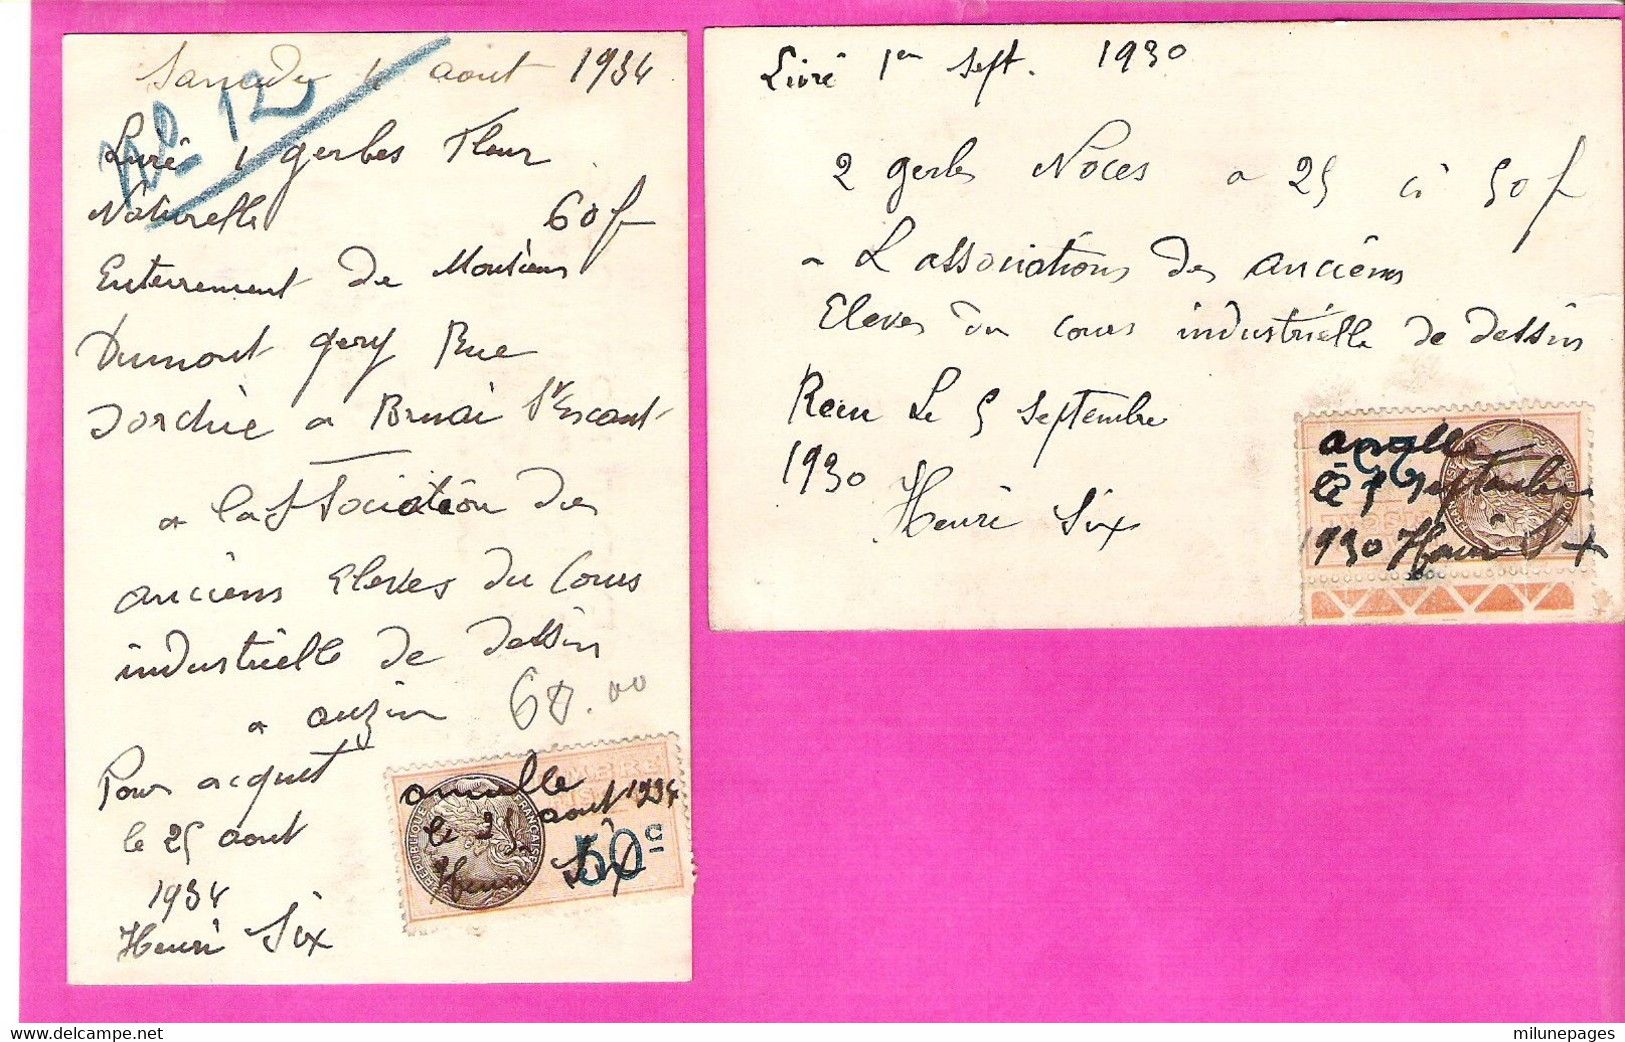 Samedi 4 aout 1934
No 12
Livré 1 gerbes Fleur
Naturelle 60f
Enterrement de Monsieur
Dumont gery Rue
a Bruai St Escaut
a lassociation des
anciens Eleves du Cours
industrielle de dessin
a anzin 60.00
Pour acquet
le 25 aout
1934
Henri Six
REPUBLIQUE FRANÇAISE
50c
annulle
le 25 aout 1934
Henri Six
Livré 1er Sept. 1930
2 gerbes Noces a 25 ci 50f
a L'associations des anciens
Eleves du cours industrielle de dessin
Recu Le 5 Septembre
1930
Henri Six
annulle
le 5 Septembre
1930 Henri Six
delcampe.net
milunepages